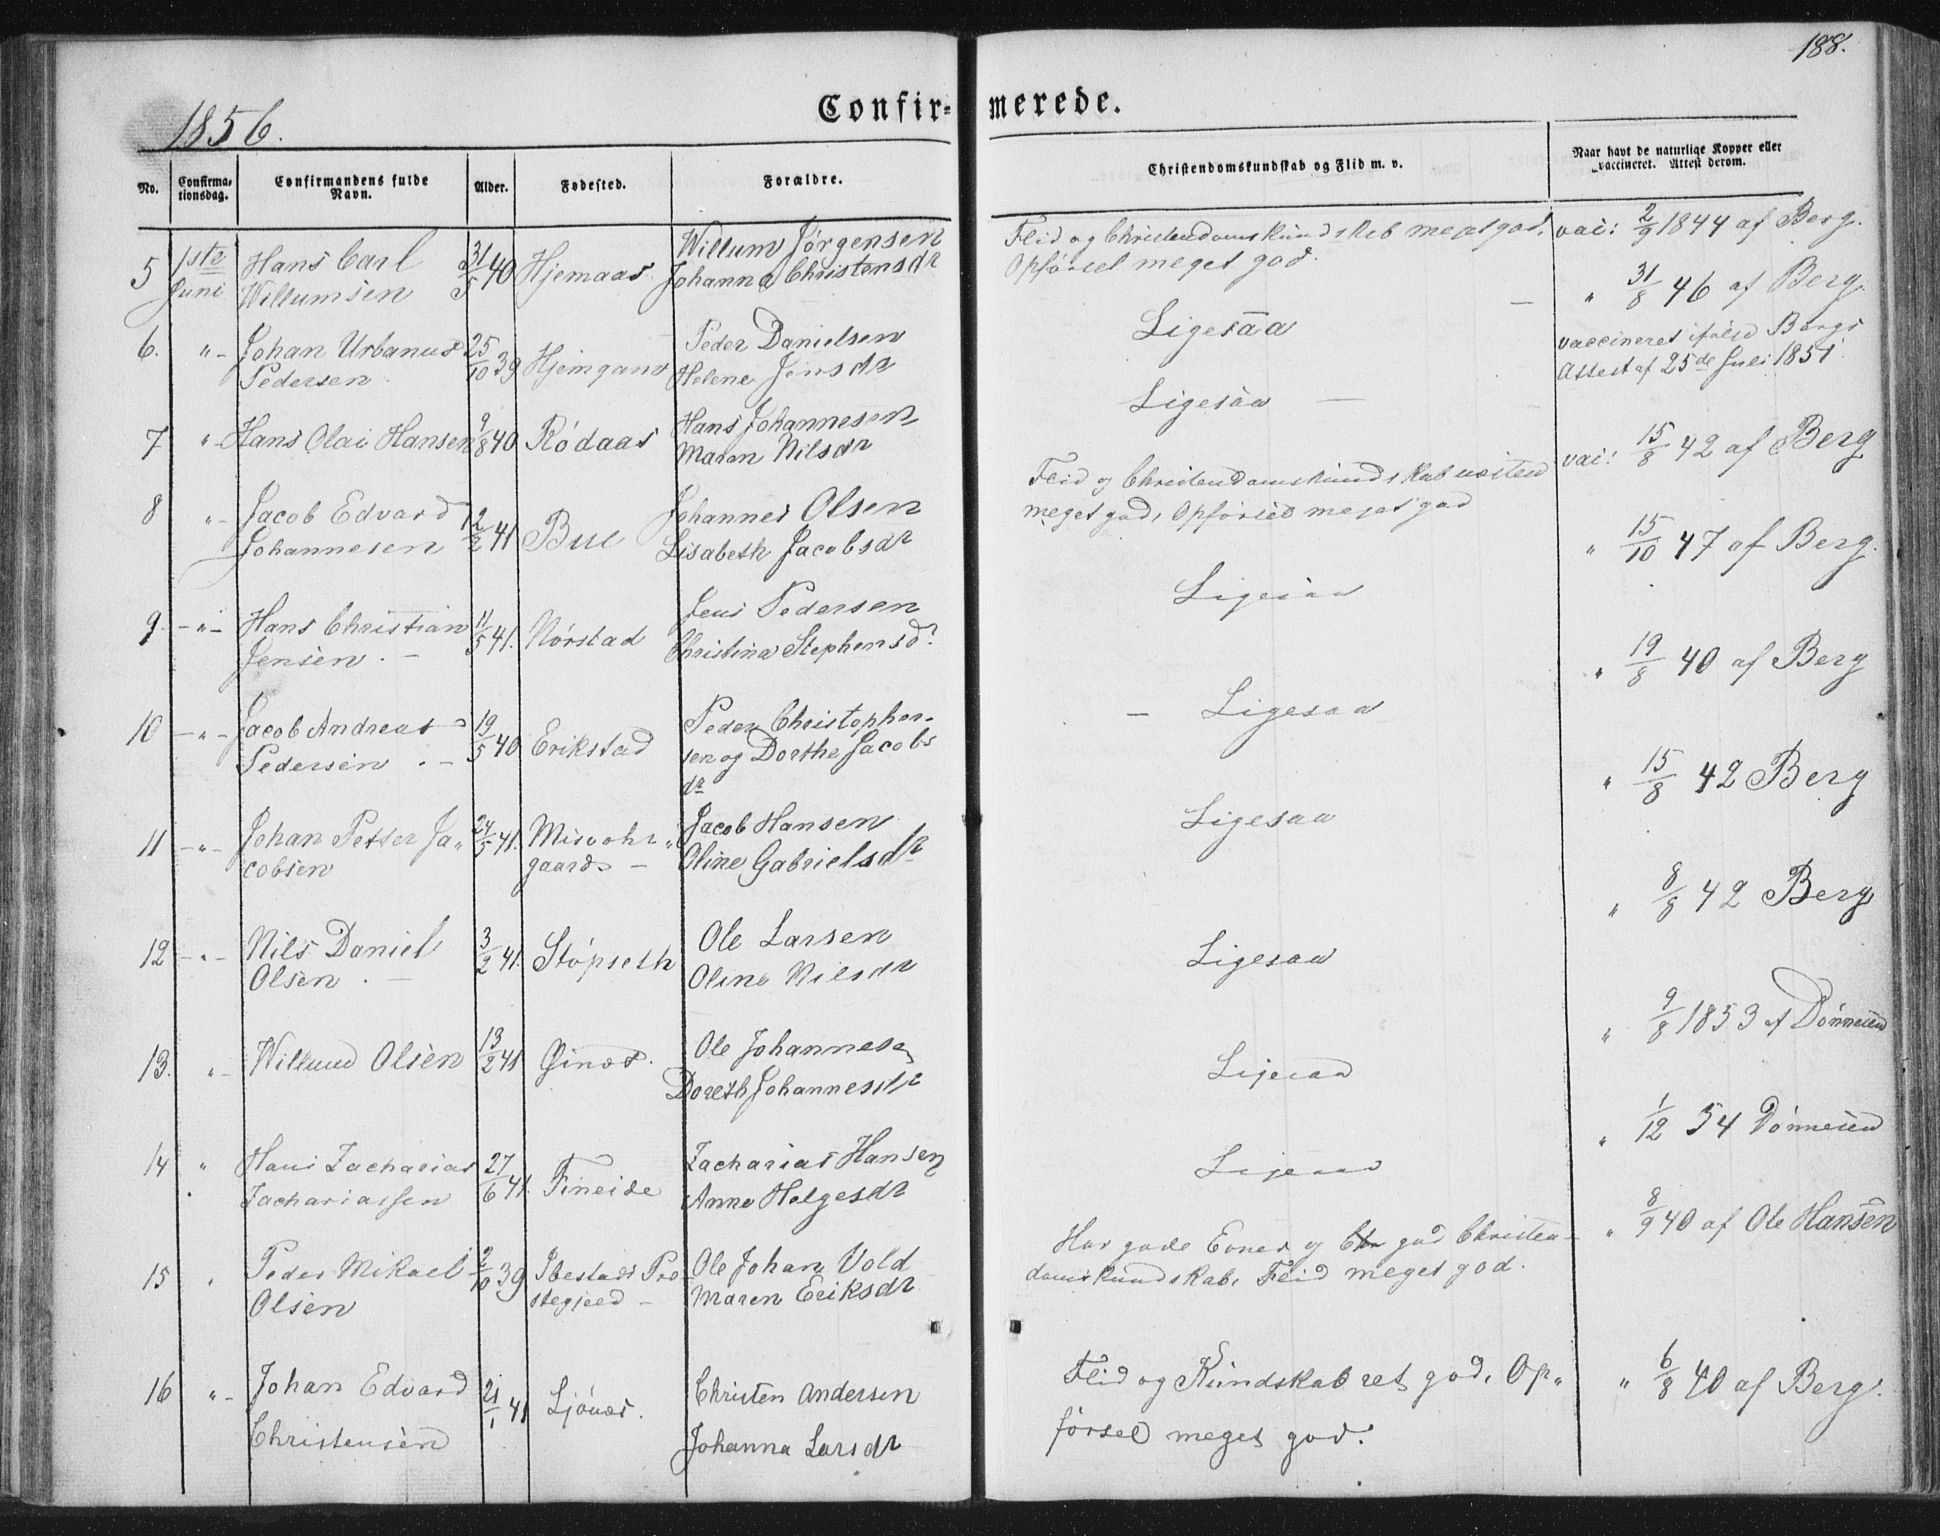 188.
1856.
Confir- merede.
No.
Confirma-
tionsdag.
Confirmandens fulde
Navn.
Alder.
Fødested.
Forældre.
Christendomskundskab og Flid m. v.
Naar havt de naturlige Kopper eller
vaccineret. Attest derom.
5 1ste Juni
Hans Carl
Willumsen
31/5 40
Hjemaas
Willum Jørgensen
Johanna Christensdr
Flid og Christendomskundskab meget god.
Opførsel meget god.
vac: 2/9 1844 af Berg.
6. " -
Johan Urbanus
Pedersen
25/10 39
Hjemgam
Peder Danielsen
Helene Jensdr
Ligesaa
" 31/8 46 af Berg.
7 " -
Hans Olai Hansen
9/8 40
Rödaas
Hans Johannesen
Maren Nilsdr
Ligesaa
vaccineret ifølge Bergs
Attest af 25de Juli 1851.
8 " -
Jacob Edvard
Johannesen
12/2 41
Bue
Johannes Olsen
Lisabeth Jacobsdr
Flid og Christendomskundskab næsten
meget god, Opførsel meget god
vac: 15/8 42 af Berg
9. - " -
Hans Christian
Jensen. -
11/5 41.
Nørstad
Jens Pedersen
Christina Stephensdr
Ligesaa
" 15/10 47 af Berg.
10 - " -
Jacob Andreas
Pedersen. -
19/5 40
Erikstad
Peder Christopher-
sen og Dorthe Jacobs
dr
- Ligesaa
" 19/8 40 af Berg
11 - " -
Johan Petter Ja"
cobsen
24/5 41.
Misvohr"
gaard. -
Jacob Hansen
Oline Gabrielsdr
Ligesaa
" 15/8 42 Berg
12 - " -
Nils Daniel
Olsen. -
3/2 41.
Støpseth
Ole Larsen
Oline Nilsdr
Ligesaa
" 8/8 42 Berg
13. " -
Willund Olsen
13/2 41
Ginæs.
Ole Johannesen
Doreth Johannesdr
Ligesaa
" 9/8 1853 af Dønnesen
14 "
Hans Zacharias
Zachariassen
27/6 41.
Fineide
Zacharias Hansen
Anne Helgesdr
Ligesaa
" 1/12 54 Dønnesen
15 "
Peder Mikael
Olsen
2/10 39
Ibestads Præ-
stegjeld -
Ole Johan Vold
Maren Eriksdr
Har gode Evner og god Christen-
domskundskab, Flid meget god.
" 8/9 40 af Ole Hansen
16 " -
Johan Edvard
Christensen
21/1 41
Ljönæs.
Christen Andersen
Johanna Larsdr
Flid og Kundskab ret god, Op"
førsel meget god.
" 6/8 40 af Berg.